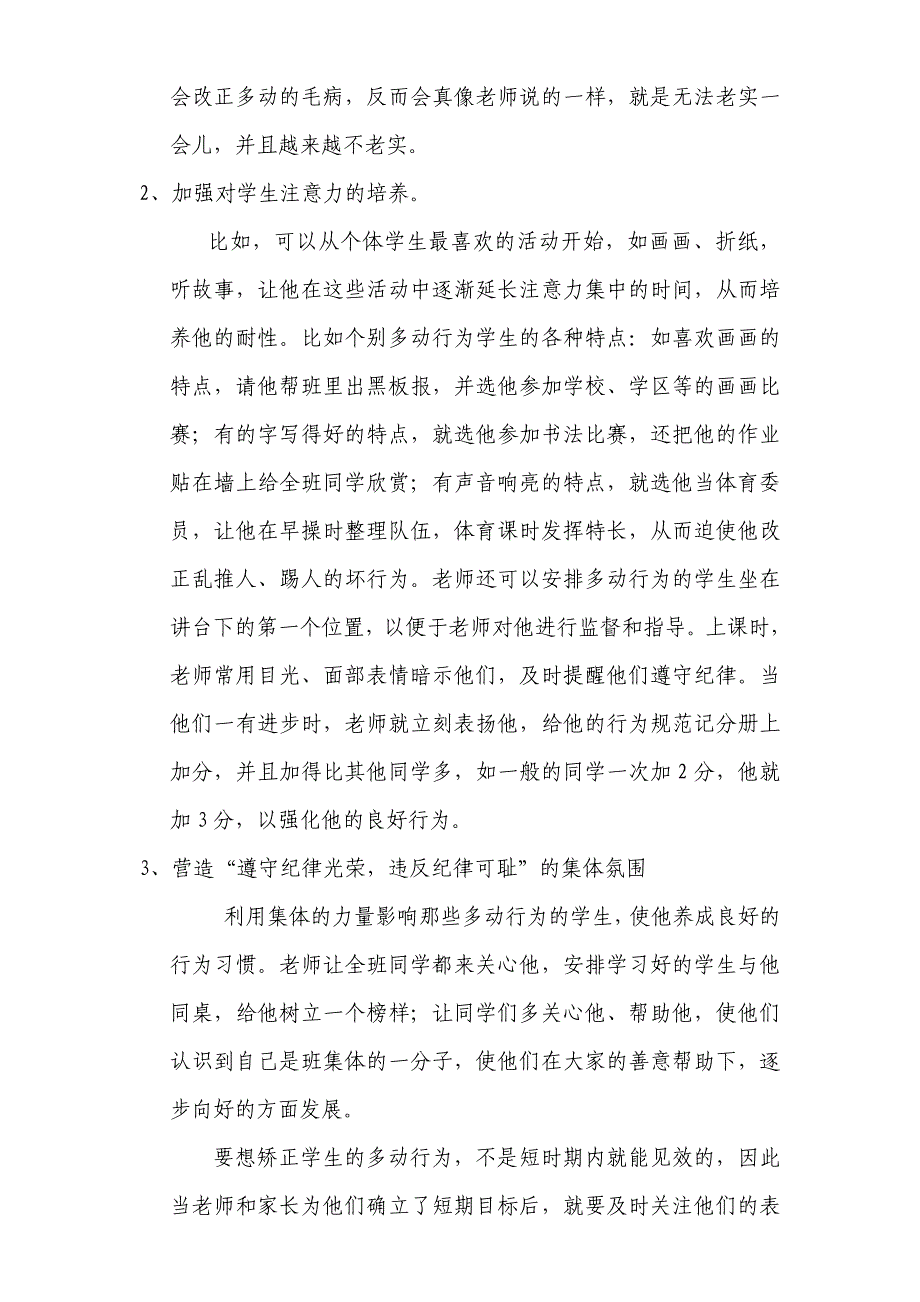 会改正多动的毛病，反而会真像老师说的一样，就是无法老实一
会儿，并且越来越不老实。
2、加强对学生注意力的培养。
比如，可以从个体学生最喜欢的活动开始，如画画、折纸，
听故事，让他在这些活动中逐渐延长注意力集中的时间，从而培
养他的耐性。比如个别多动行为学生的各种特点：如喜欢画画的
特点，请他帮班里出黑板报，并选他参加学校、学区等的画画比
赛；有的字写得好的特点，就选他参加书法比赛，还把他的作业
贴在墙上给全班同学欣赏；有声音响亮的特点，就选他当体育委
员，让他在早操时整理队伍，体育课时发挥特长，从而迫使他改
正乱推人、踢人的坏行为。老师还可以安排多动行为的学生坐在
讲台下的第一个位置，以便于老师对他进行监督和指导。上课时，
老师常用目光、面部表情暗示他们，及时提醒他们遵守纪律。当
他们一有进步时，老师就立刻表扬他，给他的行为规范记分册上
加分，并且加得比其他同学多，如一般的同学一次加2分，他就
加3分，以强化他的良好行为。
3、营造“遵守纪律光荣，违反纪律可耻”的集体氛围
利用集体的力量影响那些多动行为的学生，使他养成良好的
行为习惯。老师让全班同学都来关心他，安排学习好的学生与他
同桌，给他树立一个榜样；让同学们多关心他、帮助他，使他们
认识到自己是班集体的一分子，使他们在大家的善意帮助下，逐
步向好的方面发展。
要想矫正学生的多动行为，不是短时期内就能见效的，因此
当老师和家长为他们确立了短期目标后，就要及时关注他们的表